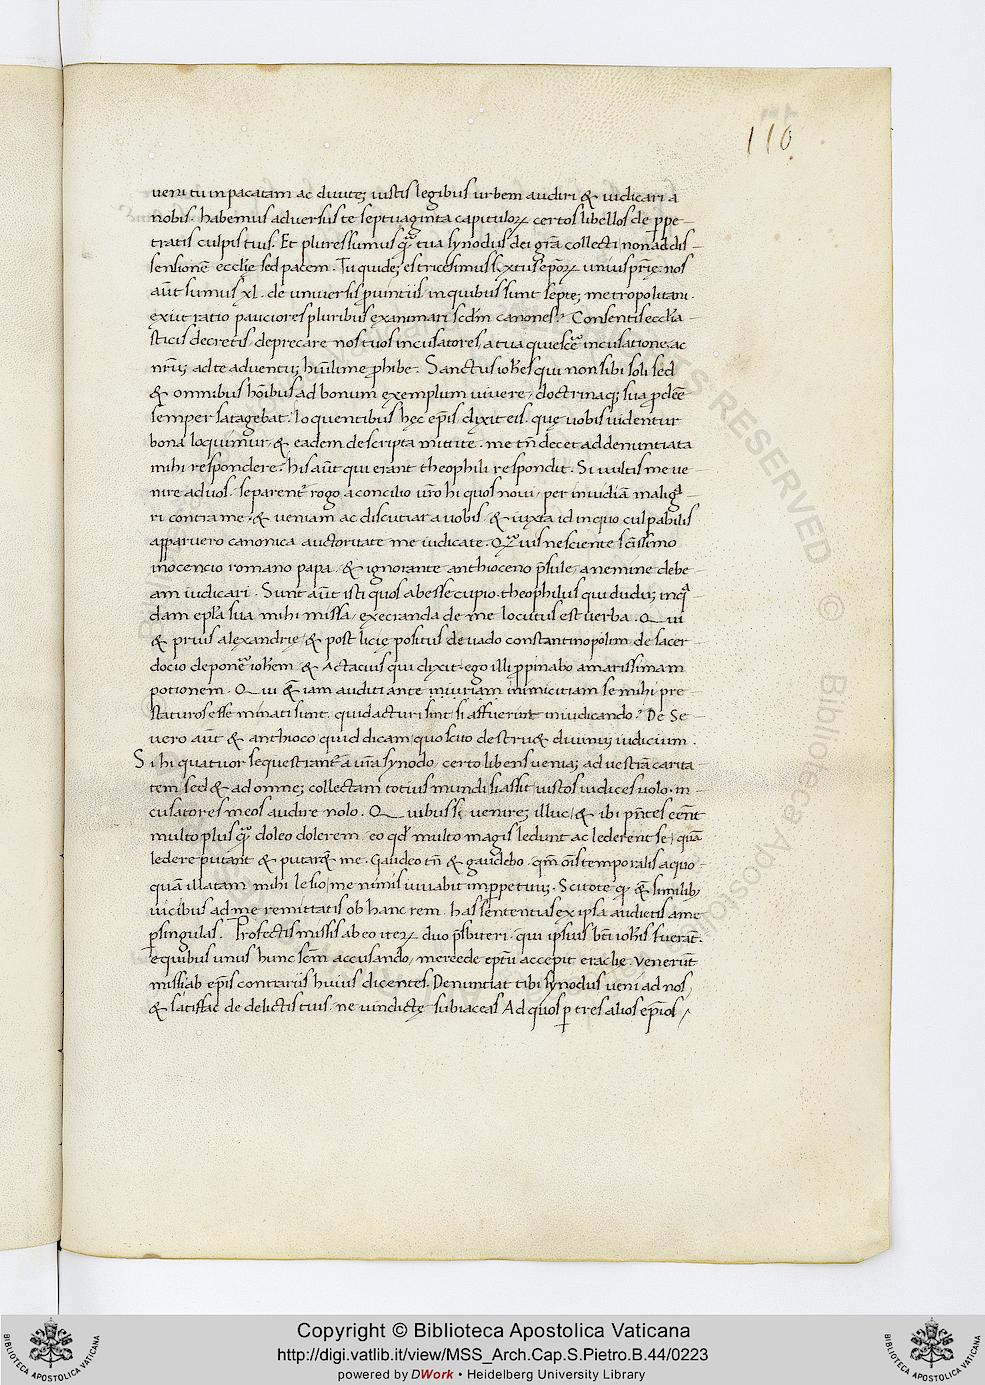 110
veni tu inpacatam ac divite; iustis legibus urbem audiri & iudicari a
nobis. habemus adversus te septuaginta capitulorꝝ certos libellos de ꝑpe-
tratis culpis tuis. Et plures sumus quā tua synodus dei gr̄a collecti non ad dis-
sensionē eccl̄ie sed pacem. Tu quidē; es tricesimus sextus ep̄orꝝ unius pr̄ię. nos
aūt sumus xl. de universis ꝓvintiis in quibus sunt septē; metropolitani.
exiit ratio pauciores pluribus examinari scd̄m canones. Consenti eccl̄ia
sticis decretis, deprecare nos tuos incusatores, a tua quiescere incusatione. ac
nr̄m; ad te adventū; hūilime ꝓhibe. Sanctus ioh̄es qui non sibi soli sed
& omnibus hōibus ad bonum exemplum vivere, doctrinaq; sua ꝓdēe
semper satagebat. loquentibus hęc ep̄is dixit eis. quę vobis videntur
bona loquimur, & eadem descripta mittite. me tn̄ decet ad denuntiata
mihi respondere. his aūt qui erant theophili respondit. Si vultis me ve-
nire ad vos. separent̄ rogo a concilio vr̄o hi quos novi, per invidiā malig-
ri contra me. & veniam ac discutiar a vobis, & iuxta id in quo culpabilis
apparuero canonica auctoritate me iudicate. nesciente sc̄issimo
inocencio romano papa. & ignorante anthioceno p̄sule, a nemine debe-
am iudicari. Sunt aūt isti quos abesse cupio. theophilus qui dudū; inq-
dam ep̄la sua mihi missa, execranda de me locutus est verba. Qui
& prius alexandrię, & post licię positus de vado constantinopolim de sacer-
docio deponere ioh̄em. & Actacius qui dixit. ego illi ꝓpinabo amarissimam
potionem. Qui & iam auditi ante iniuriam inimicitiam se mihi pre-
staturos esse minati sunt. quid acturi sint si affuerint in iudicando? De Se-
vero aūt & anthioco, quid dicam, quos cito destruet divinū; iudicium.
Si hi quatuor sequestrant̄ a vr̄a synodo, certo libens veniā; ad vestrā carita-
tem sed & ad omnē; collectam totius mundi si assit, iustos iudices volo. in-
cusatores meos audire nolo. Quibus si venire; illuc, & ibi p̄ntes eēnt
multo plus quā; doleo dolerem, eo qd̄ multo magis ledunt ac lederent se, quā
ledere putant & putarent me. Gaudeo tn̄ & gaudebo. qm̄ oīs temporalis a quo-
quā illatam mihi lesio, me nimis iuvabit inꝑpetuū;. Scitote & similib;
vicibus ad me remittatis ob hanc rem. has sententias ex ipsa audietis a me
ꝑ singulas. Profectis missis ab eo iterꝝ duo p̄sbiteri. qui ipsius bt̄i ioh̄is fuerāt.
e quibus unus hunc sc̄m accusando, mercede eptū accepit eraclie. venerūt
missi ab ep̄is contrariis huius dicentes. Denuntiat tibi synodus veni ad nos,
& satisfac de delictis tuis. ne vindictę subiaceas Ad quos ꝑ tres alios ep̄ios,
RESERVED © Biblioteca Apostolica
Copyright © Biblioteca Apostolica Vaticana
http://digi.vatlib.it/view/MSS_Arch.Cap.S.Pietro.B.44/0223
powered by DWork • Heidelberg University Library
BIBLIOTECA APOSTOLICA VATICANA
BIBLIOTECA APOSTOLICA VATICANA